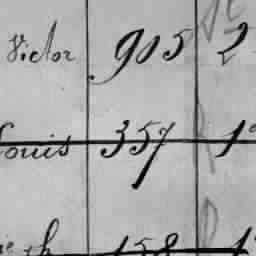 Victor 905 2
Louis 357 1
158 1